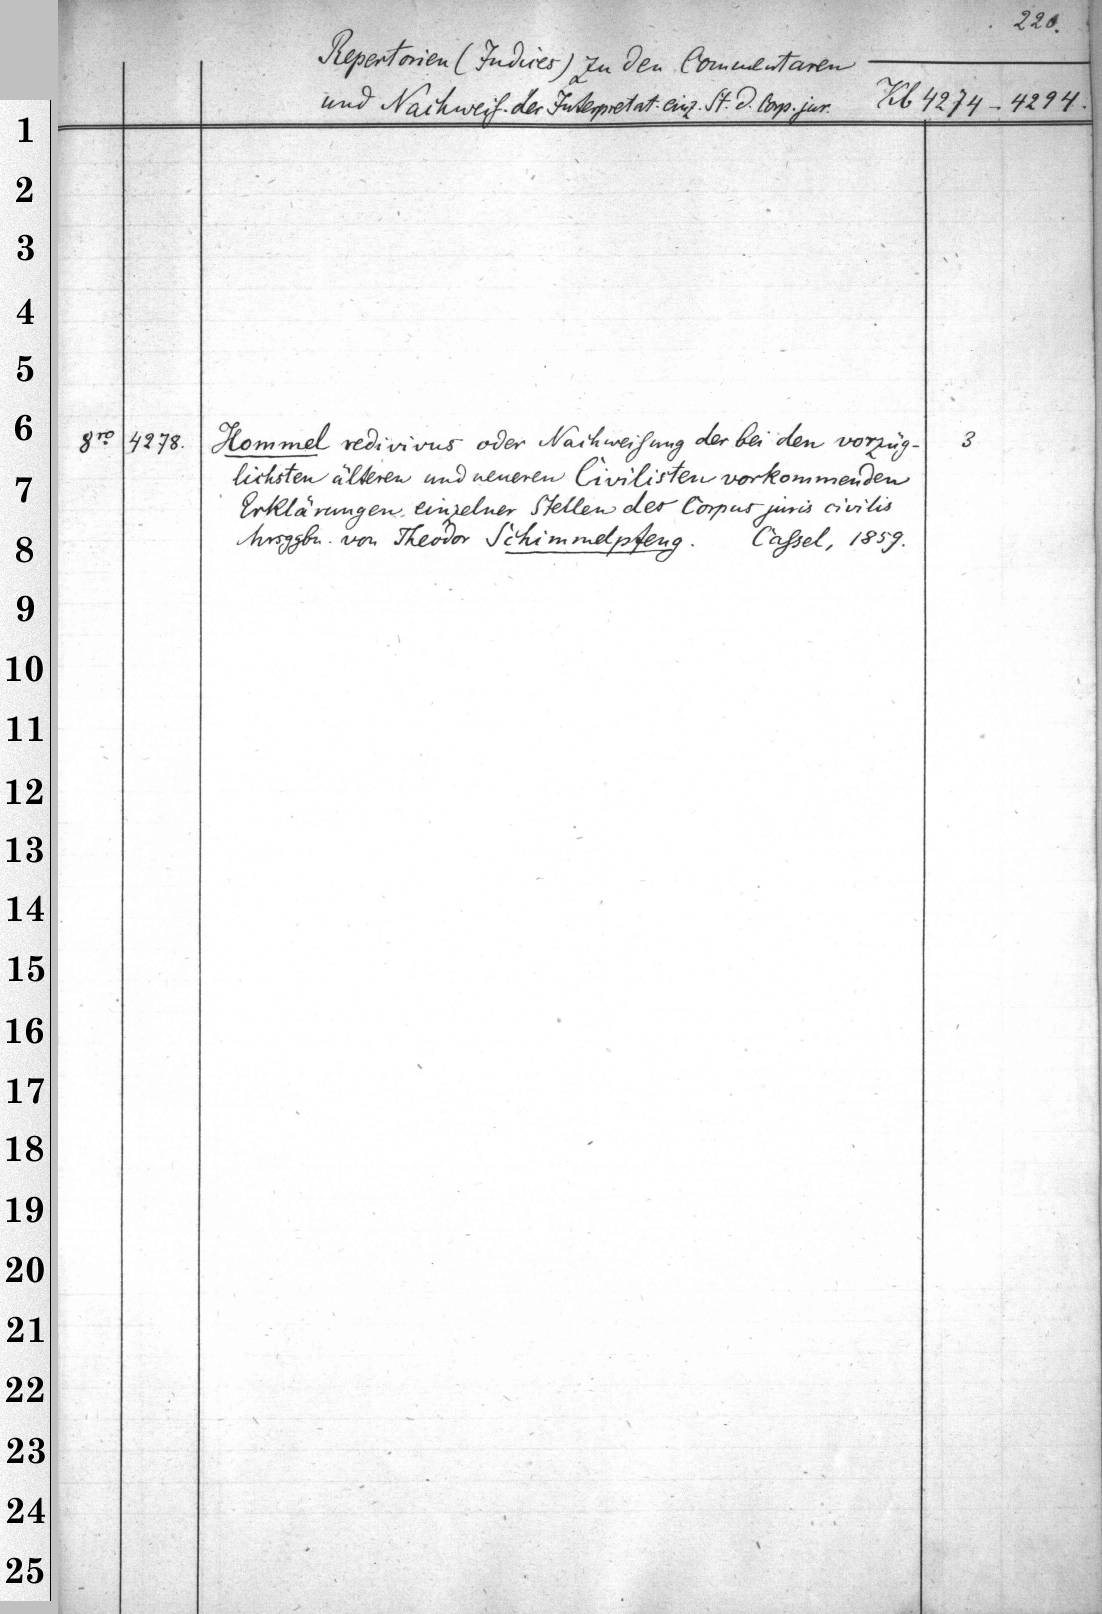 220.
Repertorien (Indices) zu den Commentaren
und Nachweis. der Interpretat. einz. St. d. Corp. jur. Kb 4274 – 4294.
1
2
3
4
5
6
8ro 4278. Hommel redivivus oder Nachweisung der bei den vorzüg- 3
lichsten älteren und neueren Civilisten vorkommenden
7
Erklärungen einzelner Stellen des Corpus juris civilis
hrsggbn. von Theodor Schimmelpfeng. Cassel, 1859.
8
9
10
11
12
13
14
15
16
17
18
19
20
21
22
23
24
25